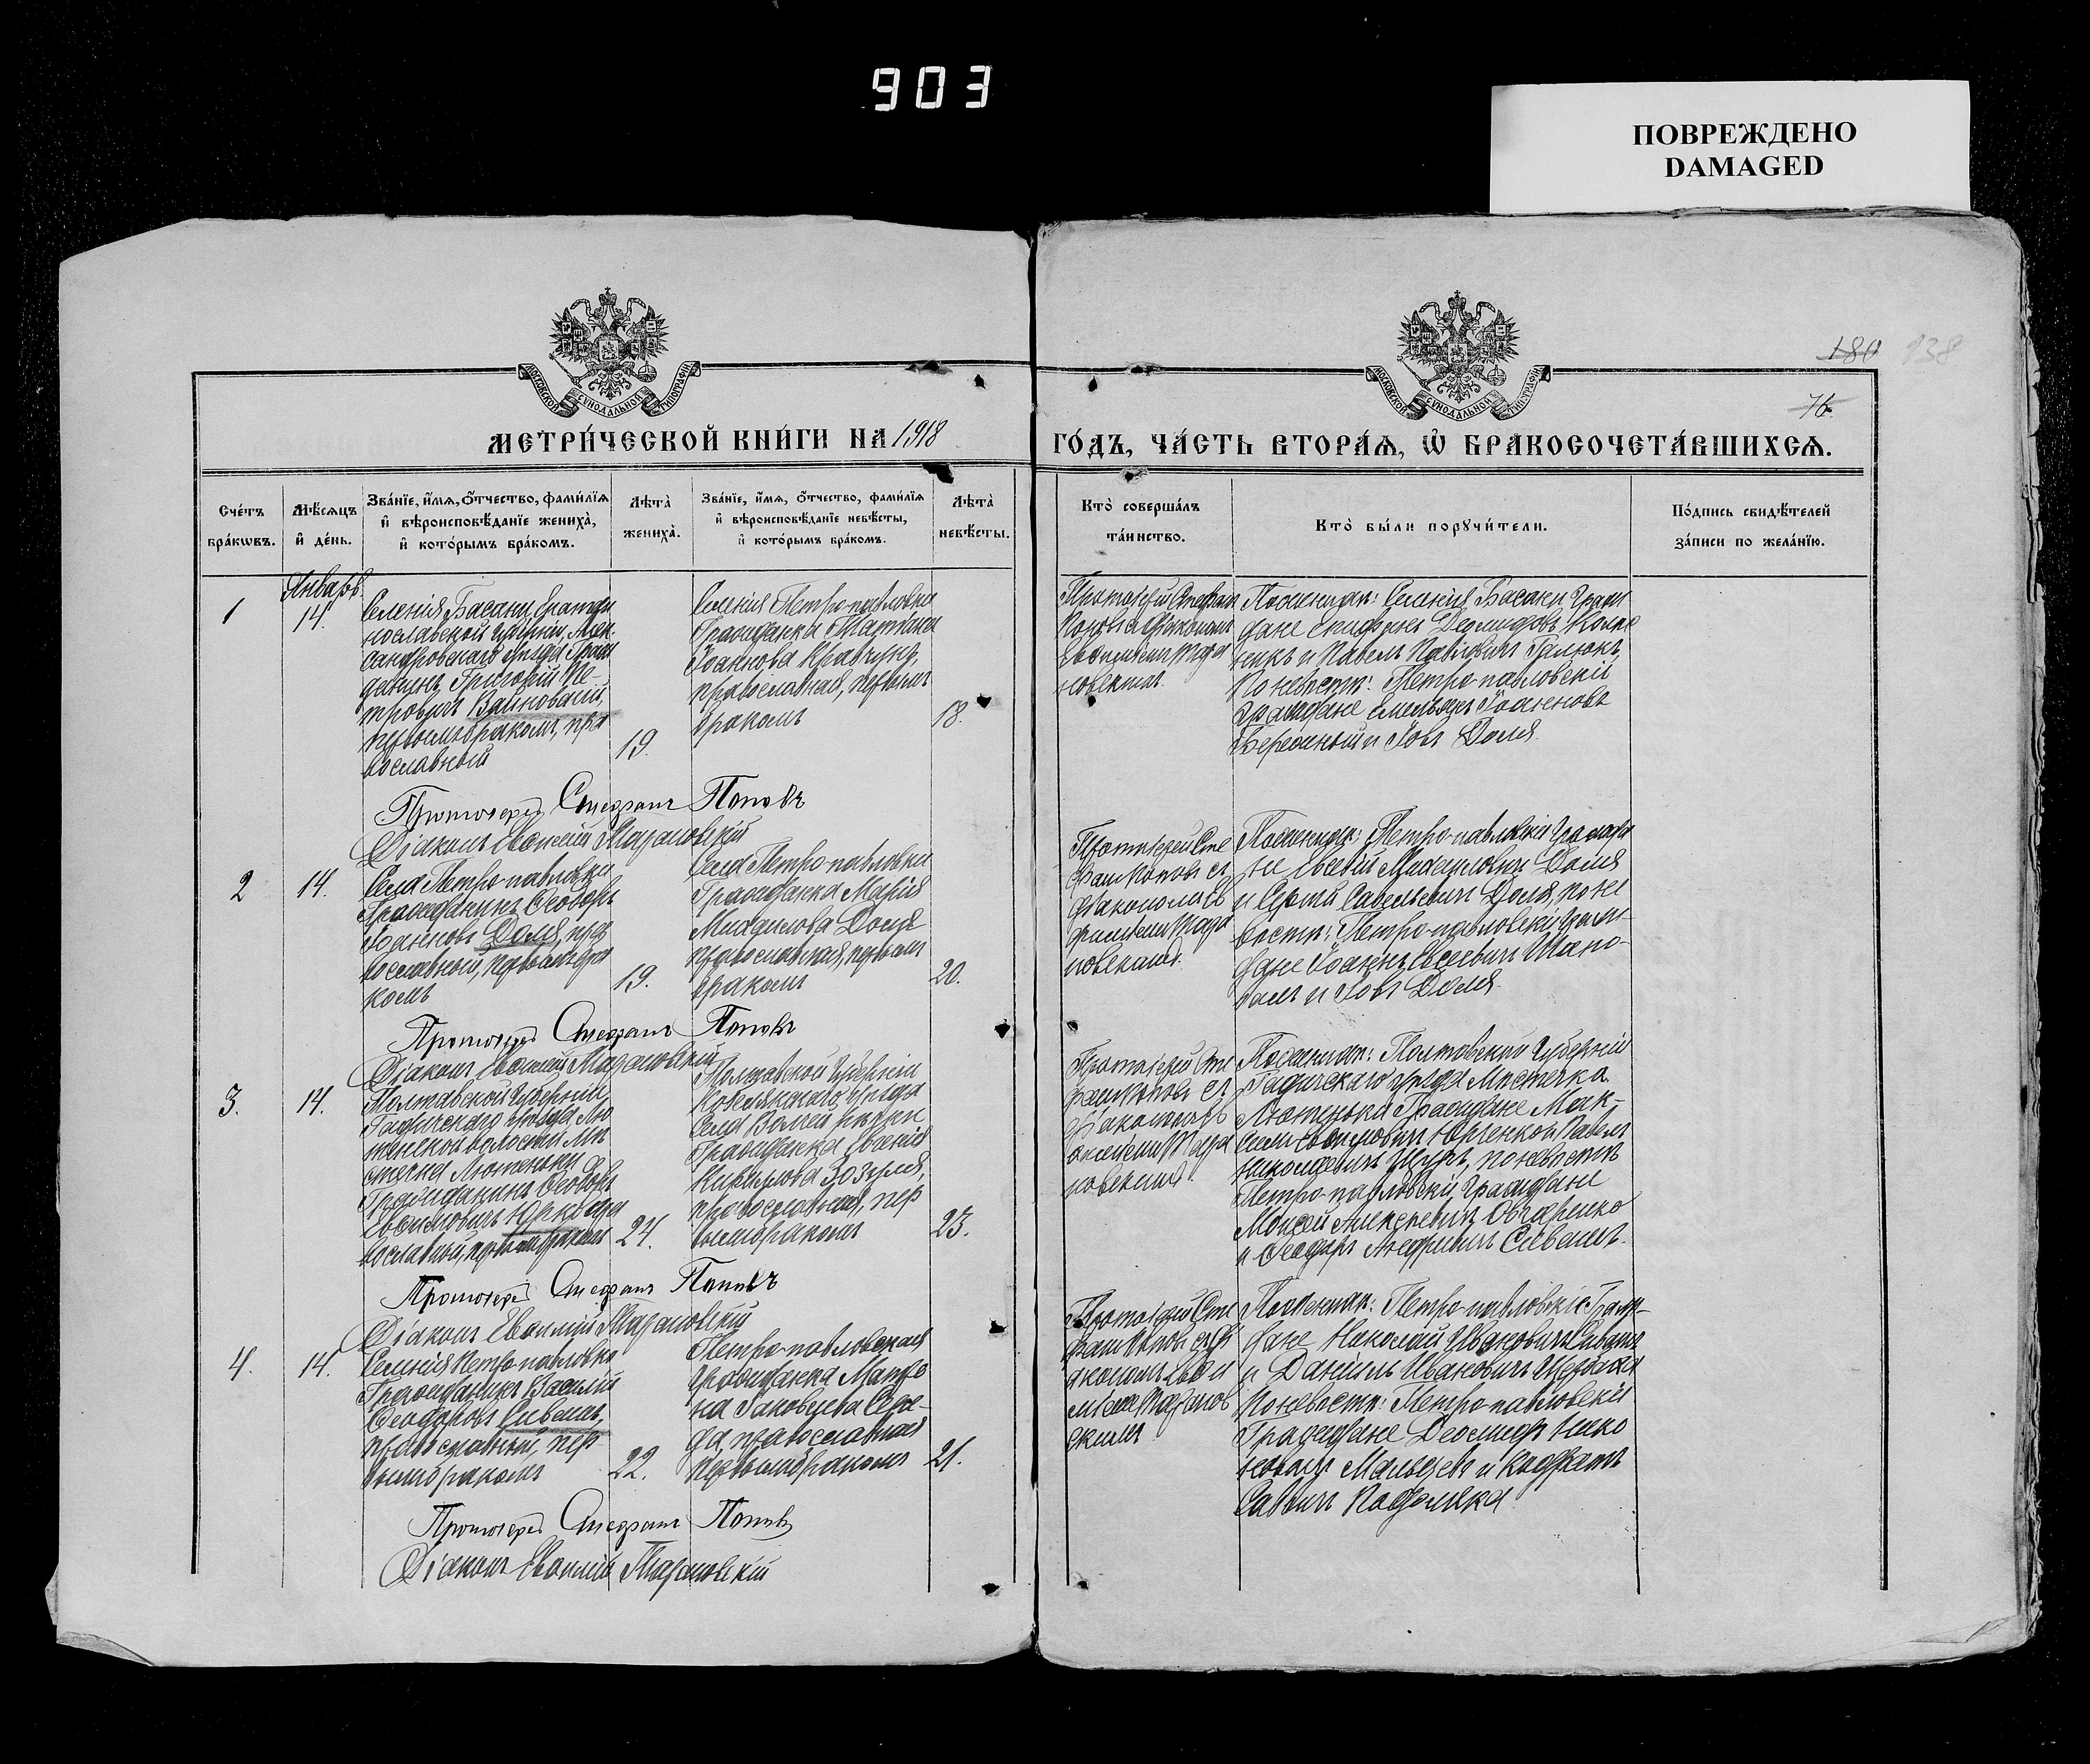 903
ПОВРЕЖДЕНО
DAMAGED
180 938
76
МОСКОВСКОЙ СѴНОДАЛЬНОЙ ТИПОГРАФІИ
МОСКОВСКОЙ СѴНОДАЛЬНОЙ ТИПОГРАФІИ
МЕТРИ́ЧЕСКОЙ КНИ́ГИ НА 1918
ГО́ДЪ, ЧА́СТЬ ВТОРА́Ѧ, Ѡ҆ БРАКОСОЧЕТА́ВШИХСѦ.
Сче́тъ бра́кѡвъ.
Мѣ́сѧцъ и҆ де́нь.
Зва́нїе, и҆́мѧ, ѻ҆́тчество, фами́лїѧ
и҆ вѣроисповѣ́данїе жениха̀,
и҆ кото́рымъ бра́комъ.
Лѣта̀ жениха̀.
Зва́нїе, и҆́мѧ, ѻ҆́тчество, фами́лїѧ
и҆ вѣроисповѣ́данїе невѣ́сты,
и҆ кото́рымъ бра́комъ.
Лѣта̀ невѣ́сты.
Кто̀ соверша́лъ
та́инство.
Кто̀ бы́ли порꙋчи́тели.
По́дпись свидѣ́телей
за́писи по жела́нїю.
Январь
1
14.
Селенія Басани, Екатери
нославской губерніи, Алек
сандровскаго уѣзда Граж
данинъ Григорій Пе-
тровичъ Войновый,
первымъ бракомъ, пра
вославный
19.
Селенія Петро-павловки
Гражданка Татіана
Іоаннова Кравчунъ,
православная, первымъ
бракомъ
18.
Протоіерей Стефанъ
Поповъ съ діакономъ
новскимъ
По женихѣ: Селенія Басани Граж
дане
и Павелъ Павловичъ
По невѣстѣ: Петро-павловскіе
Граждане Емельянъ Іоанновъ
Бережный и Іовъ Доля.
Протоіерей Стефанъ Поповъ
Діаконъ Евѳимій Тарановскій
2
14.
Села Петро-павловки
Гражданинъ Ѳеодоръ
Іоанновъ Доля, пра
вославный, первымъ бра
комъ
19.
Села Петро-павловки
Гражданка Марія
Михаилова Доля
православная, первымъ
бракомъ
20.
Протоіерей Сте
фанъ Поповъ съ
діакономъ Ев
новскимъ.
По женихѣ: Петро-павловскіе Гражда
не Евсевій Михаиловичъ Доля
и Сергій Савельевичъ Доля, по не
вѣстѣ: Петро-павловскіе Граж-
дане Іоаннъ Евсеевичъ Шапо-
валъ и Іовъ Доля.
Протоіерей Стефанъ Поповъ
Діаконъ Евѳимій Тарановскій
3.
14.
Полтавской Губерніи
Гадячскаго уѣзда, Лю
тенской волости мѣ
стечка Лютеньки
Гражданинъ Ѳеодоръ
Евѳимовичъ Юрко пра
вославный, первымъ бракомъ
24.
Полтавской Губерніи
Кобелякскаго уѣзда
Гражданка Евгенія
Кириллова Зозуля,
православная, пер
вымъ бракомъ
23.
Протоіерей Сте
фанъ Поповъ съ
діакономъ Ев
ѳиміемъ Тара
новскимъ.
По женихѣ: Полтавской Губерніи
Гадячскаго уѣзда Мѣстечка
Лютеньки Граждане Мак-
симъ Евѳимовичъ Юрченко и Павелъ
Николаевичъ Щуръ, по невѣстѣ
Петро-павловскіе Граждане
Моисей Алексѣевичъ Овчаренко
и Ѳеодоръ Андреевичъ Сивашъ.
Протоіерей Стефанъ Поповъ
Діаконъ Евѳимій Тарановскій
4.
14.
Селенія Петро-павловки
Гражданинъ Василій
Ѳеодоровъ Сивашъ,
православный, пер
вымъ бракомъ
22.
Петро-павловская
Гражданка Матро
на Іаковлева Сере-
да, православная
первымъ бракомъ
21.
Протоіерей Сте
фанъ Поповъ съ ді
акономъ Евѳи
міемъ Таранов
скимъ
По женихѣ: Петро-павловскіе Граж-
дане Николай Ивановичъ Сивашъ
и Даніилъ Ивановичъ
По невѣстѣ: Петро-павловскіе
Граждане Діомидъ Нико
Мальцевъ и Кодратъ
Савичъ Подоляка.
Протоіерей Стефанъ Поповъ
Діаконъ Евѳимій Тарановскій